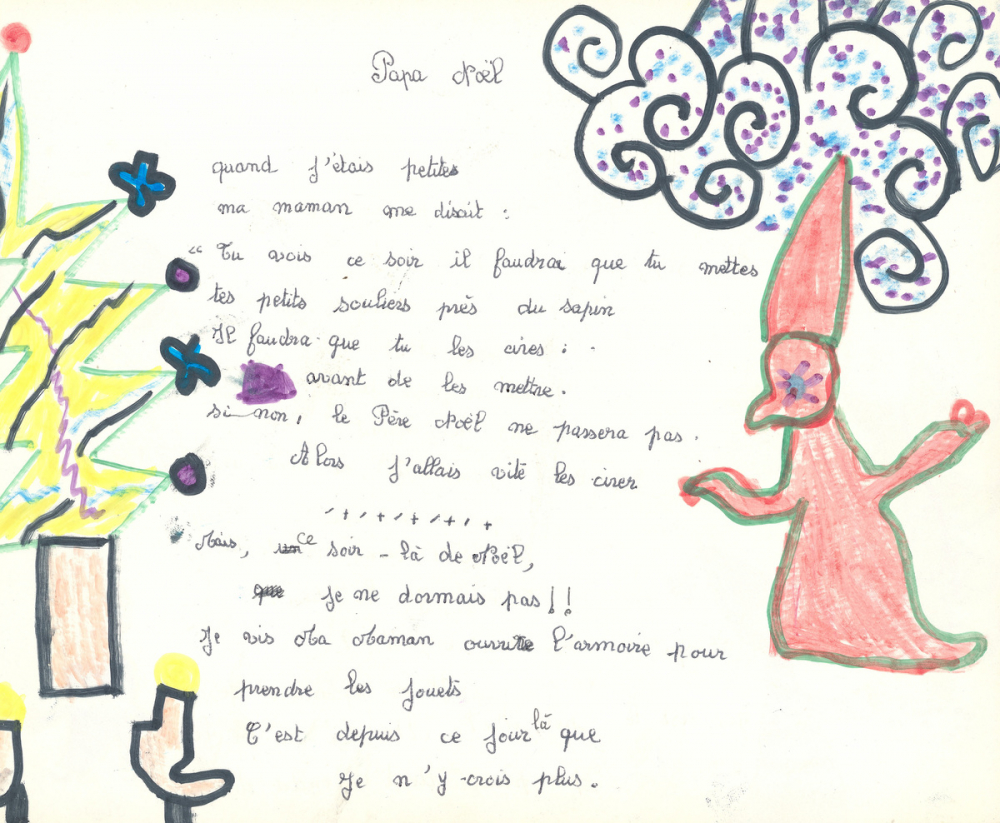 Papa Noël
quand j'étais petites
ma maman me disait :
“ Tu vois ce soir il faudrai que tu mettes
tes petits souliers près du sapin
Il faudra que tu les cires :
avant de les mettre.
si non, le Père Noël ne passera pas.
Alors j'allais vite les cirer
Mais, ce soir - là de Noël,
Je ne dormais pas!!
Je vis Ma Maman ouvrire l'armoire pour
prendre les jouets
C'est depuis ce jour là que
Je n'y crois plus.